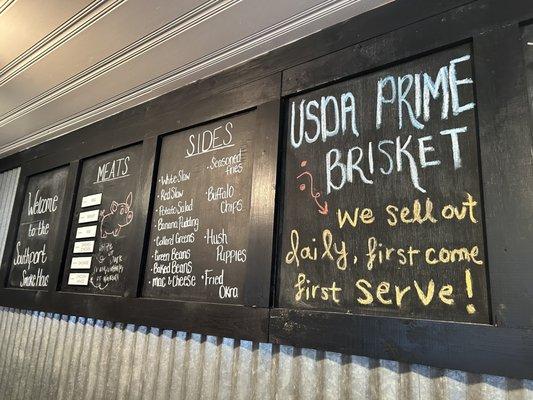 Welcome
to the
Southport
Smoke House
MEATS
SIDES
• White Slaw
• Red Slaw
• Potato Salad
• Banana Pudding
• Collard Greens
• Green Beans
• Baked Beans
• Mac n Cheese
• Seasoned
Fries
• Buffalo
Chips
• Hush
Puppies
• Fried
Okra
USDA PRIME
BRISKET
We sell out
daily, first come
first serve!